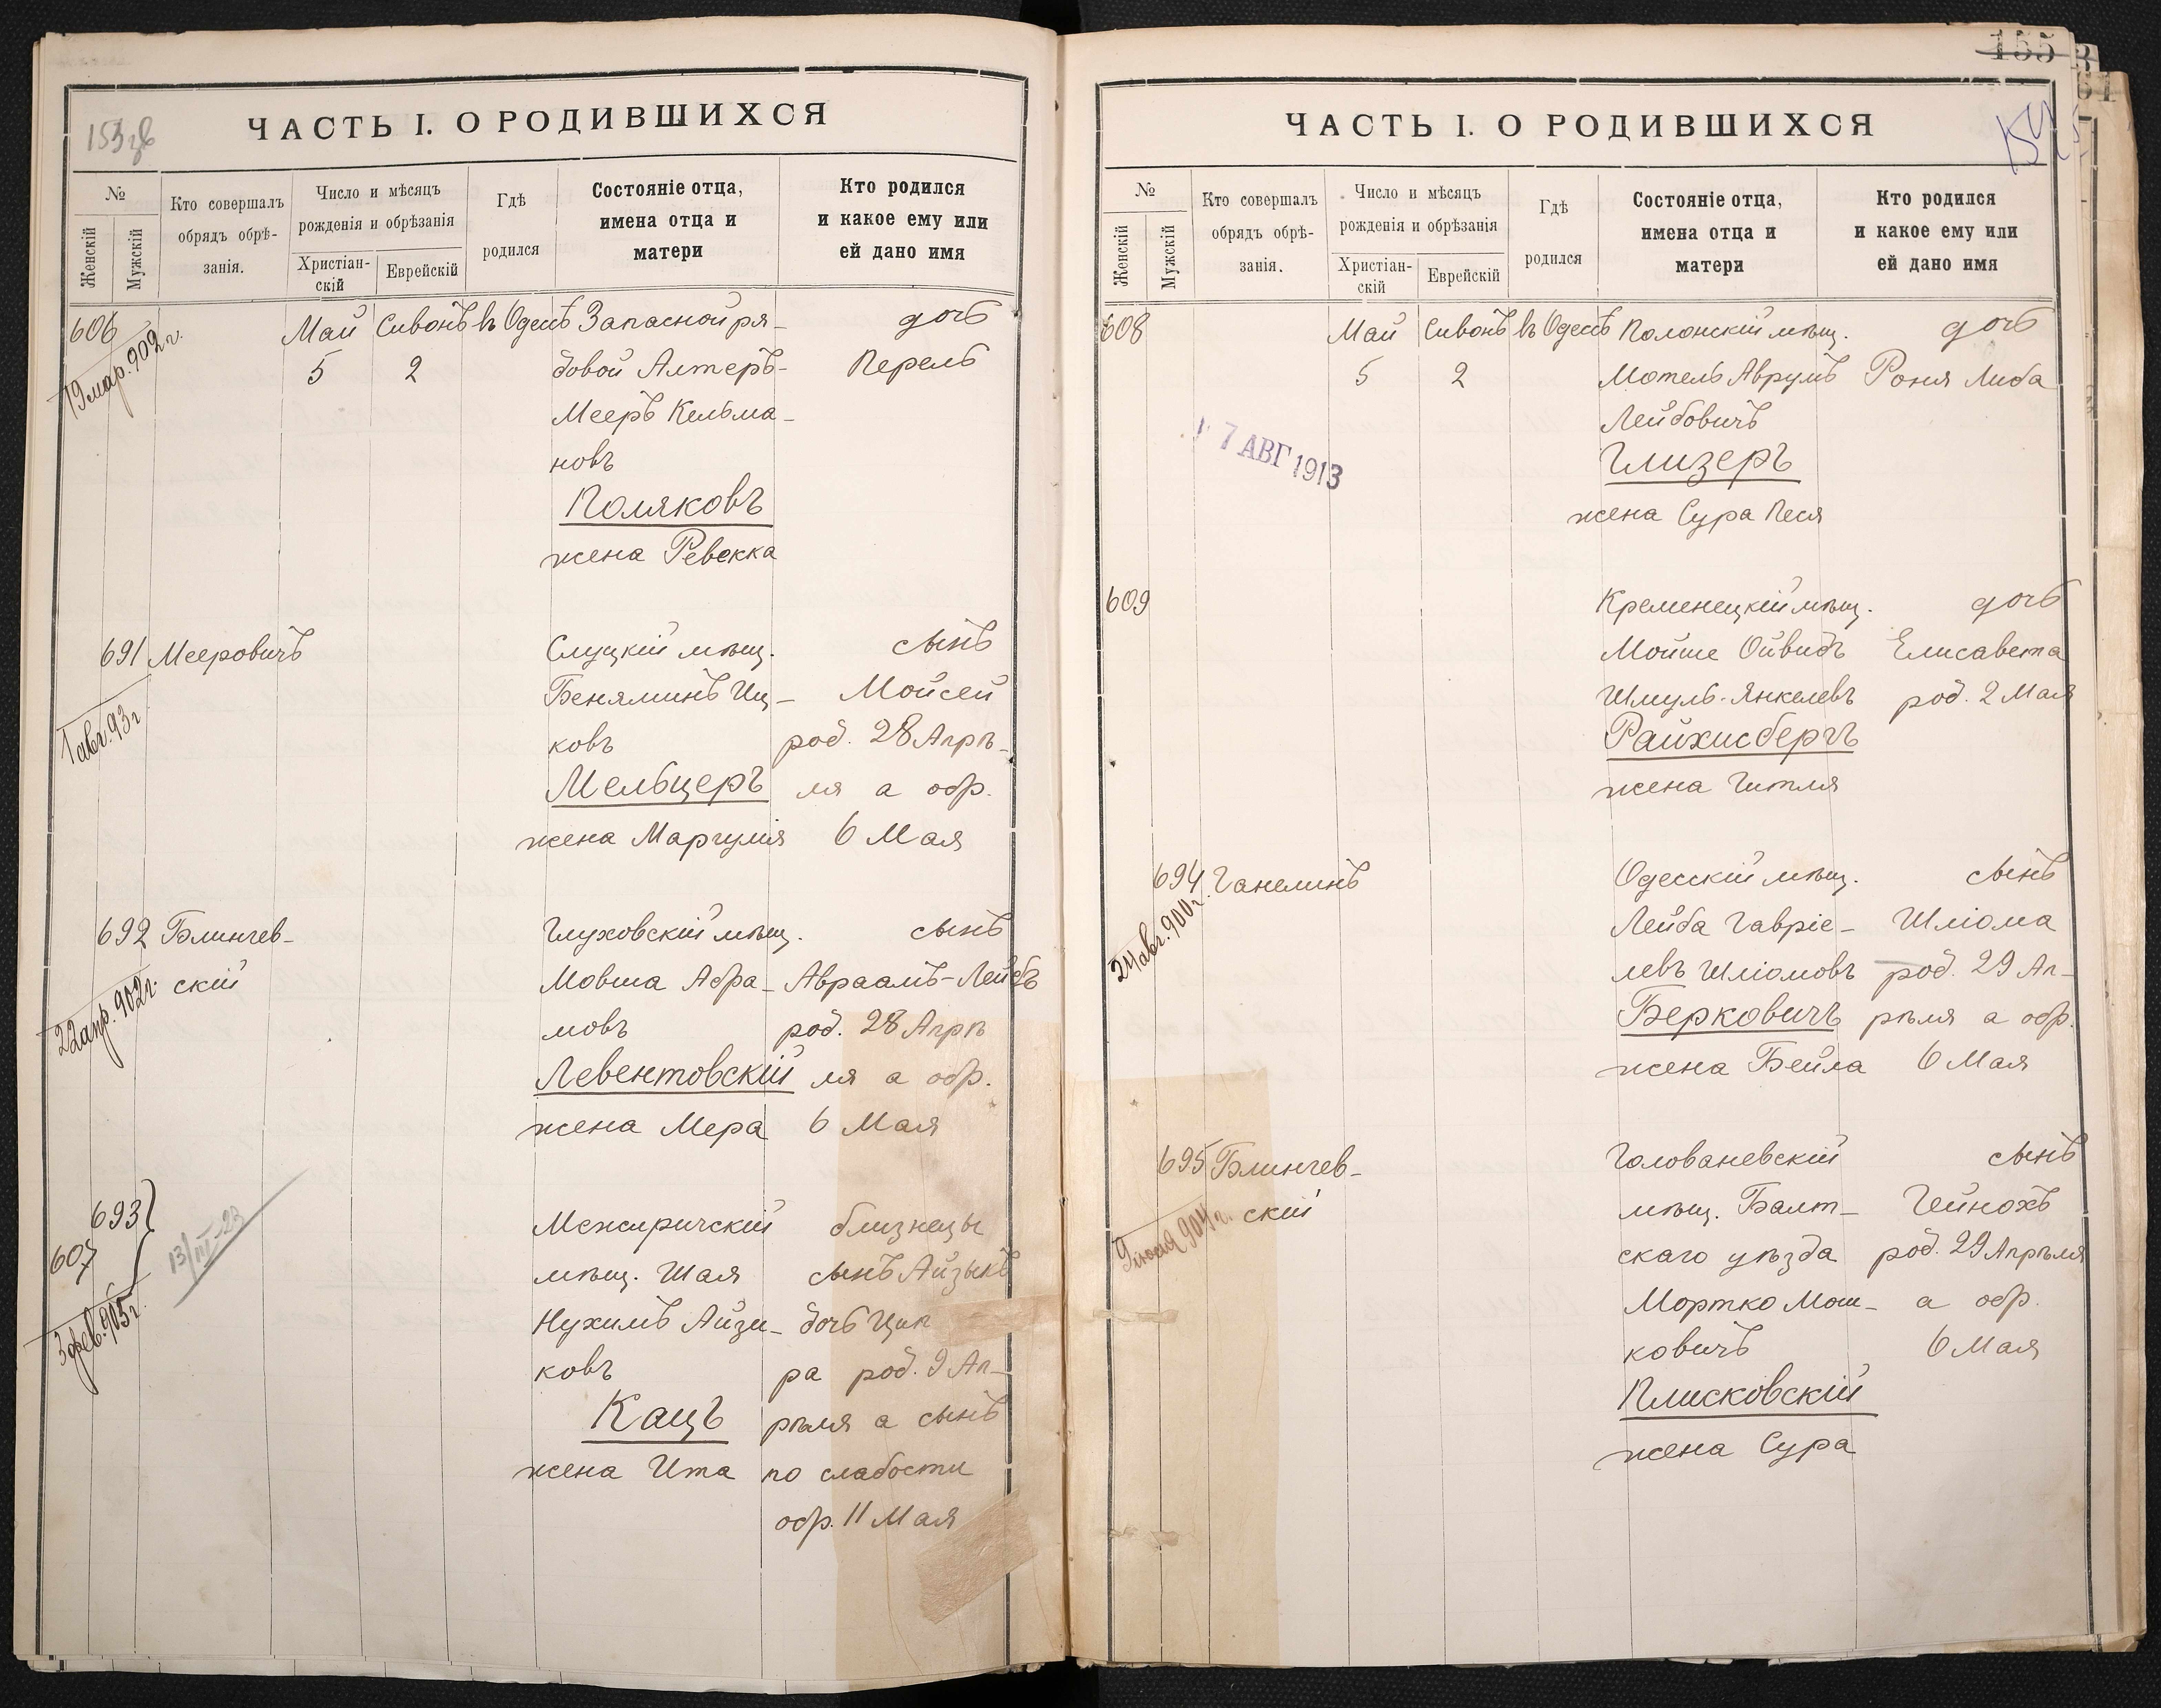 153 зв
ЧАСТЬ I. О РОДИВШИХСЯ
№
Женскій
Мужскій
Кто совершалъ
обрядъ обрѣ-
занія.
Число и мѣсяцъ
рожденія и обрѣзанія
Христіан-
скій
Еврейскій
Гдѣ
родился
Состояніе отца,
имена отца и
матери
Кто родился
и какое ему или
ей дано имя
606 Май Сивонъ въ Одессѣ Запасной ря- дочь
19 мар. 902 г. 5 2 довой Алтеръ- Перель
Мееръ Кельма-
новъ
Поляковъ
жена Ревекка
691 Мееровичъ Слуцкій мѣщ. сынъ
Беняминъ Иц- Мойсей
1 авг. 93 г. ковъ род. 28 Апрѣ-
Мельцеръ ля а обр.
жена Маргулія 6 Мая
692 Блинчев- Глуховскій мѣщ. сынъ
скій Мовша Абра- Авраамъ-Лейбъ
22 апр. 902 г. мовъ род. 28 Апрѣ
Левентовскій ля а обр.
жена Мера 6 Мая
693 Межиричскій близнецы
607 13/III-23 мѣщ. Шая сынъ Айзыкъ
3 фев. 905 г. Нухимъ Айзи- дочь Цип
ковъ ра род. 9 Ап-
Кацъ рѣля а сынъ
жена Ита по слабости
обр. 11 Мая
155
61
ЧАСТЬ I. О РОДИВШИХСЯ
№
Женскій
Мужскій
Кто совершалъ
обрядъ обрѣ-
занія.
Число и мѣсяцъ
рожденія и обрѣзанія
Христіан-
скій
Еврейскій
Гдѣ
родился
Состояніе отца,
имена отца и
матери
Кто родился
и какое ему или
ей дано имя
608 Май Сивонъ въ Одессѣ Полонскій мѣщ. дочь
5 2 Мотель Аврумъ Роня Либа
Лейбовичъ
7 АВГ 1913
Глизеръ
жена Сура Песя
609 Кременецкій мѣщ. дочь
Мойше Ойвидъ Елисавета
Шмуль-Янкелевъ род. 2 Мая
Райхисбергъ
жена Гитля
694 Ганелинъ Одесскій мѣщ. сынъ
24 авг. 900 г. Лейба Гавріе- Шліома
левъ Шліомовъ род. 29 Ап-
Берковичъ рѣля а обр.
жена Бейла 6 Мая
695 Блинчев- Голованевскій сынъ
скій мѣщ. Балт- Гейнохъ
904 г. скаго уѣзда род. 29 Апрѣля
Мортко Мош- а обр.
ковичъ 6 Мая
Плисковскій
жена Сура